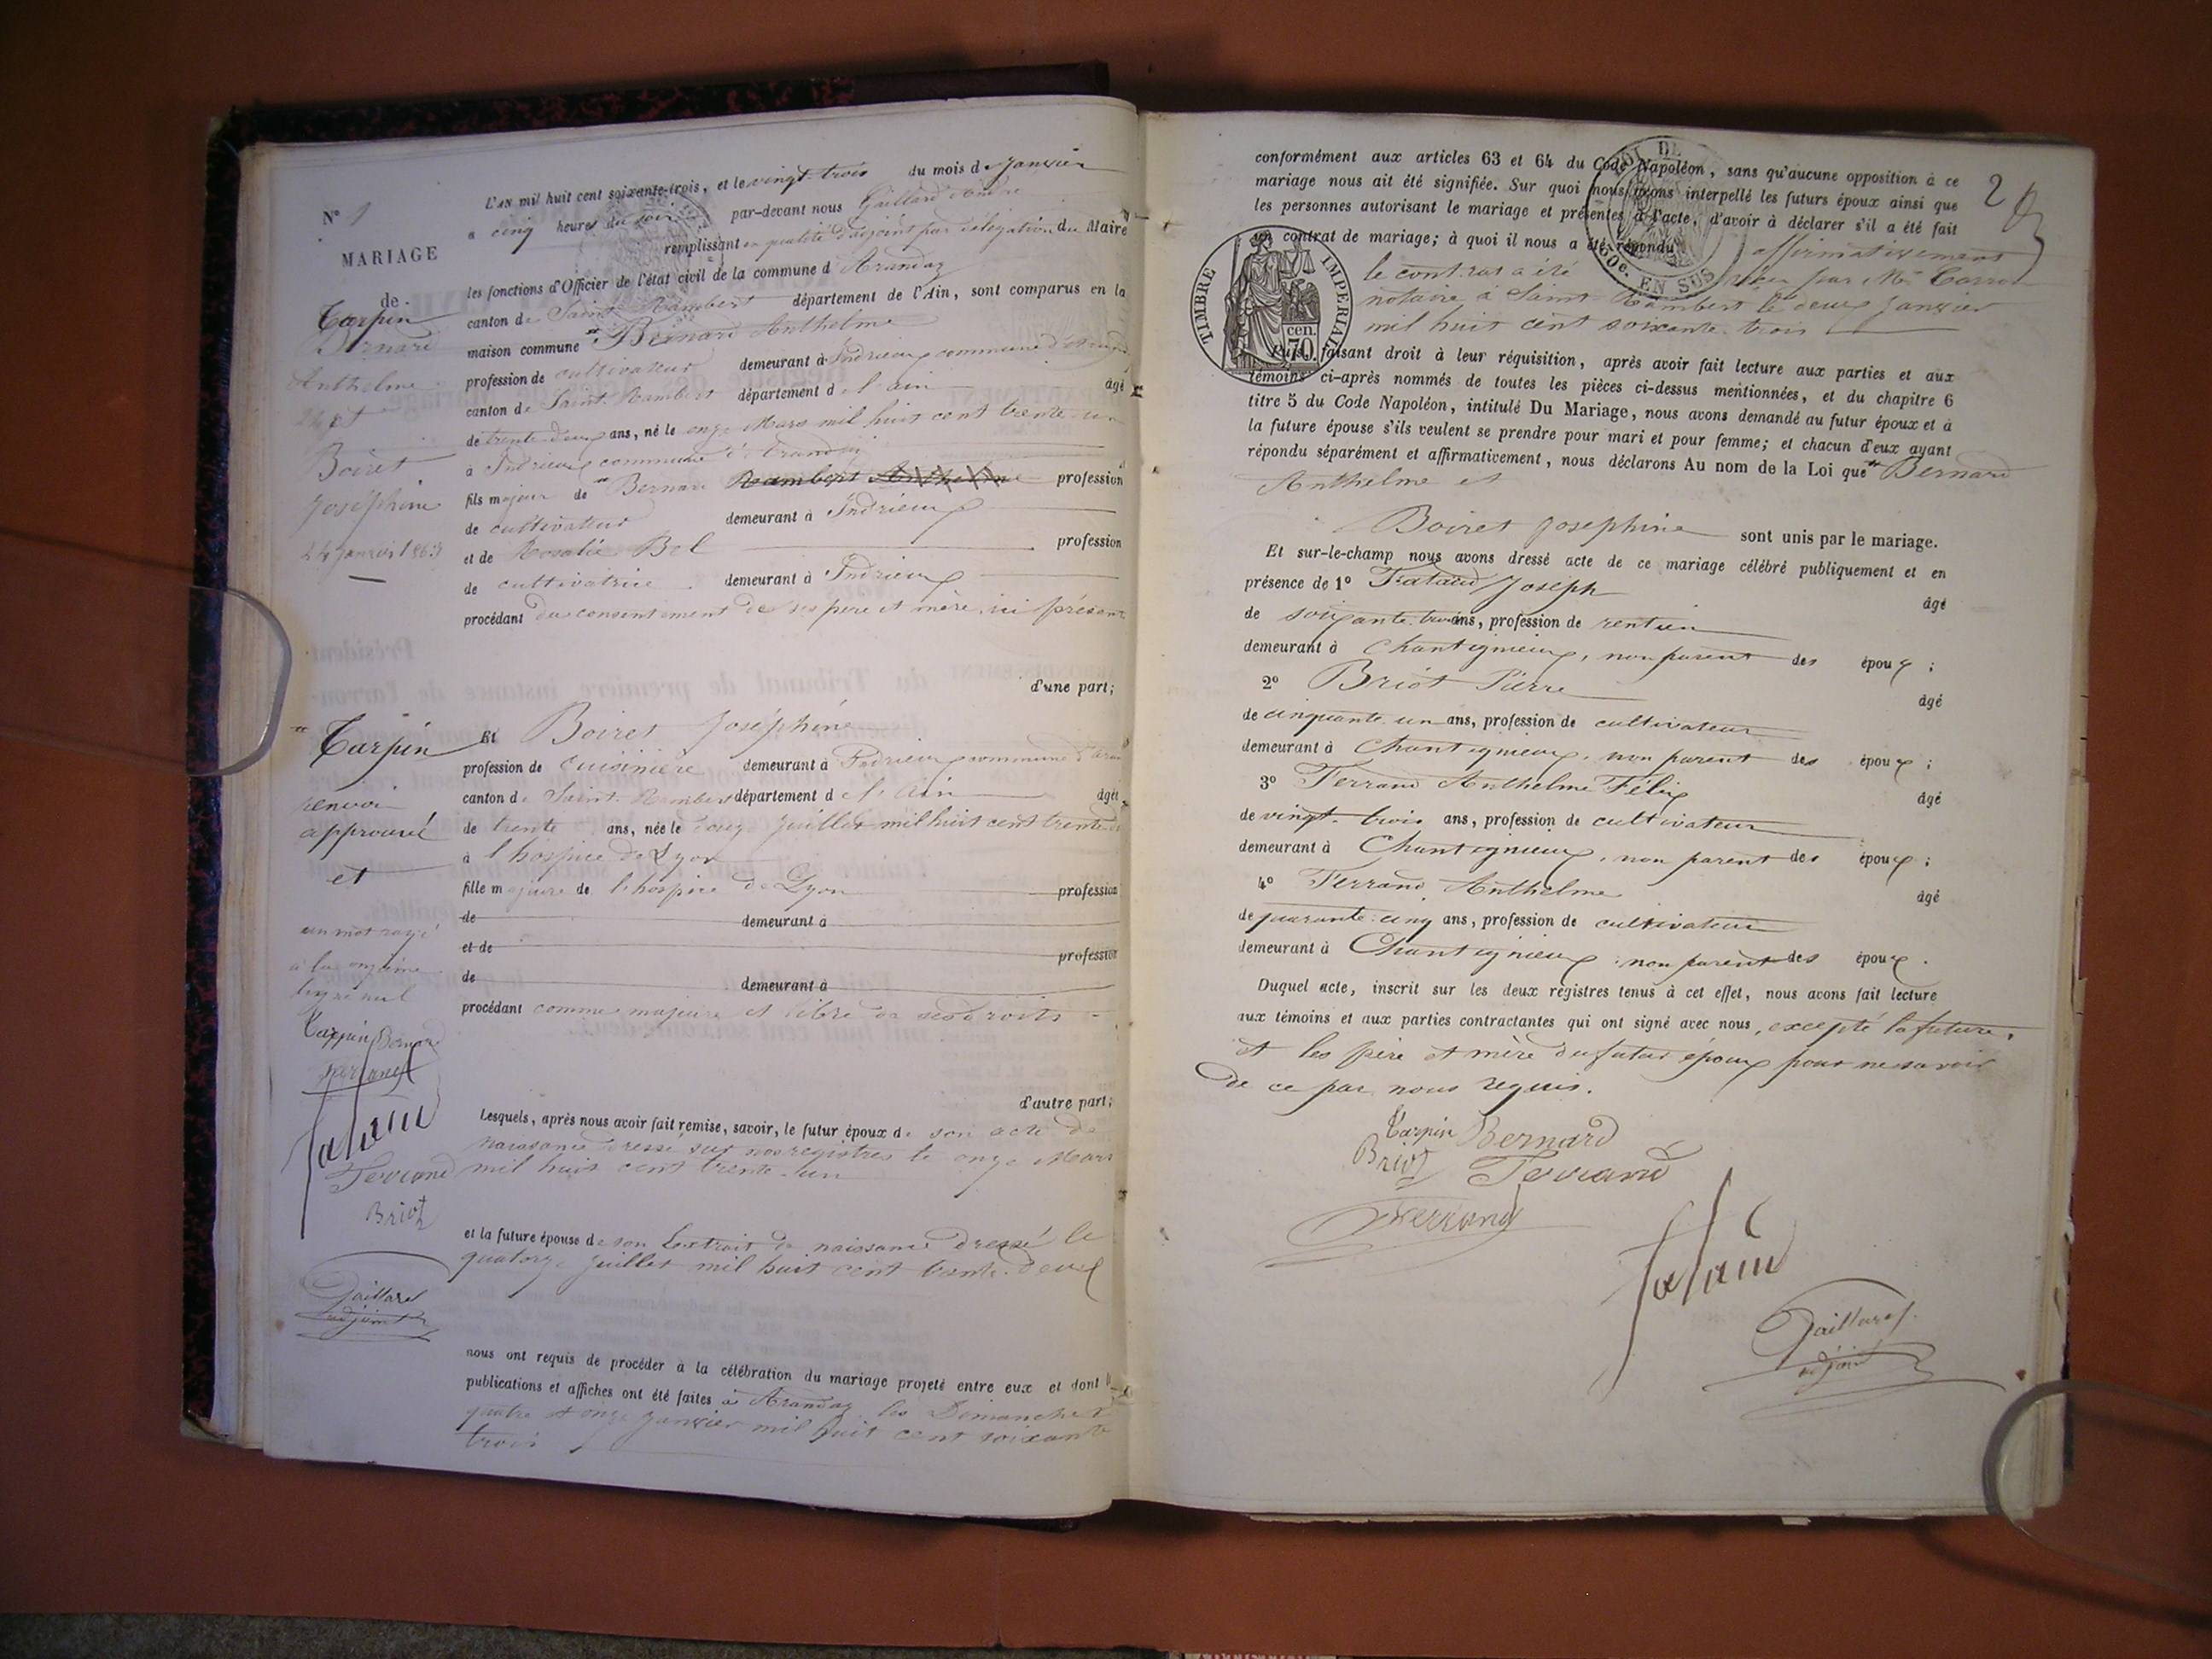 N° 1
MARIAGE
de
Carpin
Bernard
Anthelme
et
Boiret
Joséphine
24 janvier 1863
Carpin
renvoi
approuvé
et
un mot rayé
à la onzième
ligne nul
Carpin Bernard
Ferrand
Briot
Gaillard
adjoint
L'AN mil huit cent soixante-trois, et le vingt-trois du mois de janvier
a cinq heures du soir par-devant nous Gaillard André
remplissant en qualité d'adjoint par délégation du Maire
les fonctions d'Officier de l'état civil de la commune d Arandaz
canton de Saint Rambert département de l'Ain, sont comparus en la
maison commune Bernard Anthelme
profession de cultivateur demeurant à Indrieux commune d'Arandaz
canton de Saint-Rambert département d e l'ain âgé
de trente deux ans, né le onze Mars mil huit cent trente-un
à Indrieux commune d'Arandaz
fils majeur de Bernard Rambert Anthelme profession
de cultivateur demeurant à Indrieux
et de Rosalie Bel profession
de cultivatrice demeurant à Indrieux
procédant du consentement de ses père et mère, ici présents
d'une part;
Et Boiret Joséphine
profession de cuisinière demeurant à Indrieux commune d'Aran
canton de Saint-Rambert département d e l'Ain âgée
de trente ans, née le douze Juillet mil huit cent trente
à l'hospice de Lyon
fille majeure de l'hospice de Lyon profession
de demeurant à
et de profession
de demeurant à
procédant comme majeure et libre de ses droits
d'autre part;
Lesquels, après nous avoir fait remise, savoir, le futur époux de son acte de
naissance dressé sur nos registres le onze Mars
mil huit cent trente-un
et la future épouse de son Extrait de naissance dressé le
quatorze juillet mil huit cent trente-deux
nous ont requis de procéder à la célébration du mariage projeté entre eux et dont
publications et affiches ont été faites à Arandaz les Dimanches
quatre et onze janvier mil huit cent soixante
trois
2
conformément aux articles 63 et 64 du Code Napoléon, sans qu'aucune opposition à ce
mariage nous ait été signifiée. Sur quoi nous avons interpellé les futurs époux ainsi que
les personnes autorisant le mariage et présentes à l'acte, d'avoir à déclarer s'il a été fait
un contrat de mariage; à quoi il nous a été répondu affirmativement
le contrat a été reçu par Me Carron
notaire à Saint-Rambert le deux janvier
mil huit cent soixante-trois
TIMBRE IMPERIAL
70 cen.
60c. EN SUS
Puis, faisant droit à leur réquisition, après avoir fait lecture aux parties et aux
témoins ci-après nommés de toutes les pièces ci-dessus mentionnées, et du chapitre 6
titre 5 du Code Napoléon, intitulé Du Mariage, nous avons demandé au futur époux et à
la future épouse s'ils veulent se prendre pour mari et pour femme; et chacun d'eux ayant
répondu séparément et affirmativement, nous déclarons Au nom de la Loi que Bernard
Anthelme et
Boiret Josephine sont unis par le mariage.
Et sur-le-champ nous avons dressé acte de ce mariage célébré publiquement et en
présence de 1° Joseph âgé
de soixante-trois ans, profession de rentier
demeurant à Chantignieux, non parent des époux;
2° Briot Pierre âgé
de cinquante-un ans, profession de cultivateur
demeurant à Chantignieux, non parent des époux;
3° Ferrand Anthelme Félix âgé
de vingt-trois ans, profession de cultivateur
demeurant à Chantignieux, non parent des époux;
4° Ferrand Anthelme âgé
de quarante-cinq ans, profession de cultivateur
demeurant à Chantignieux, non parent des époux.
Duquel acte, inscrit sur les deux registres tenus à cet effet, nous avons fait lecture
aux témoins et aux parties contractantes qui ont signé avec nous, excepté la future,
et les père et mère du futur époux pour ne savoir
de ce par nous requis.
Carpin Bernard
Briot Ferrand
Ferrand
Gaillard
adjoint